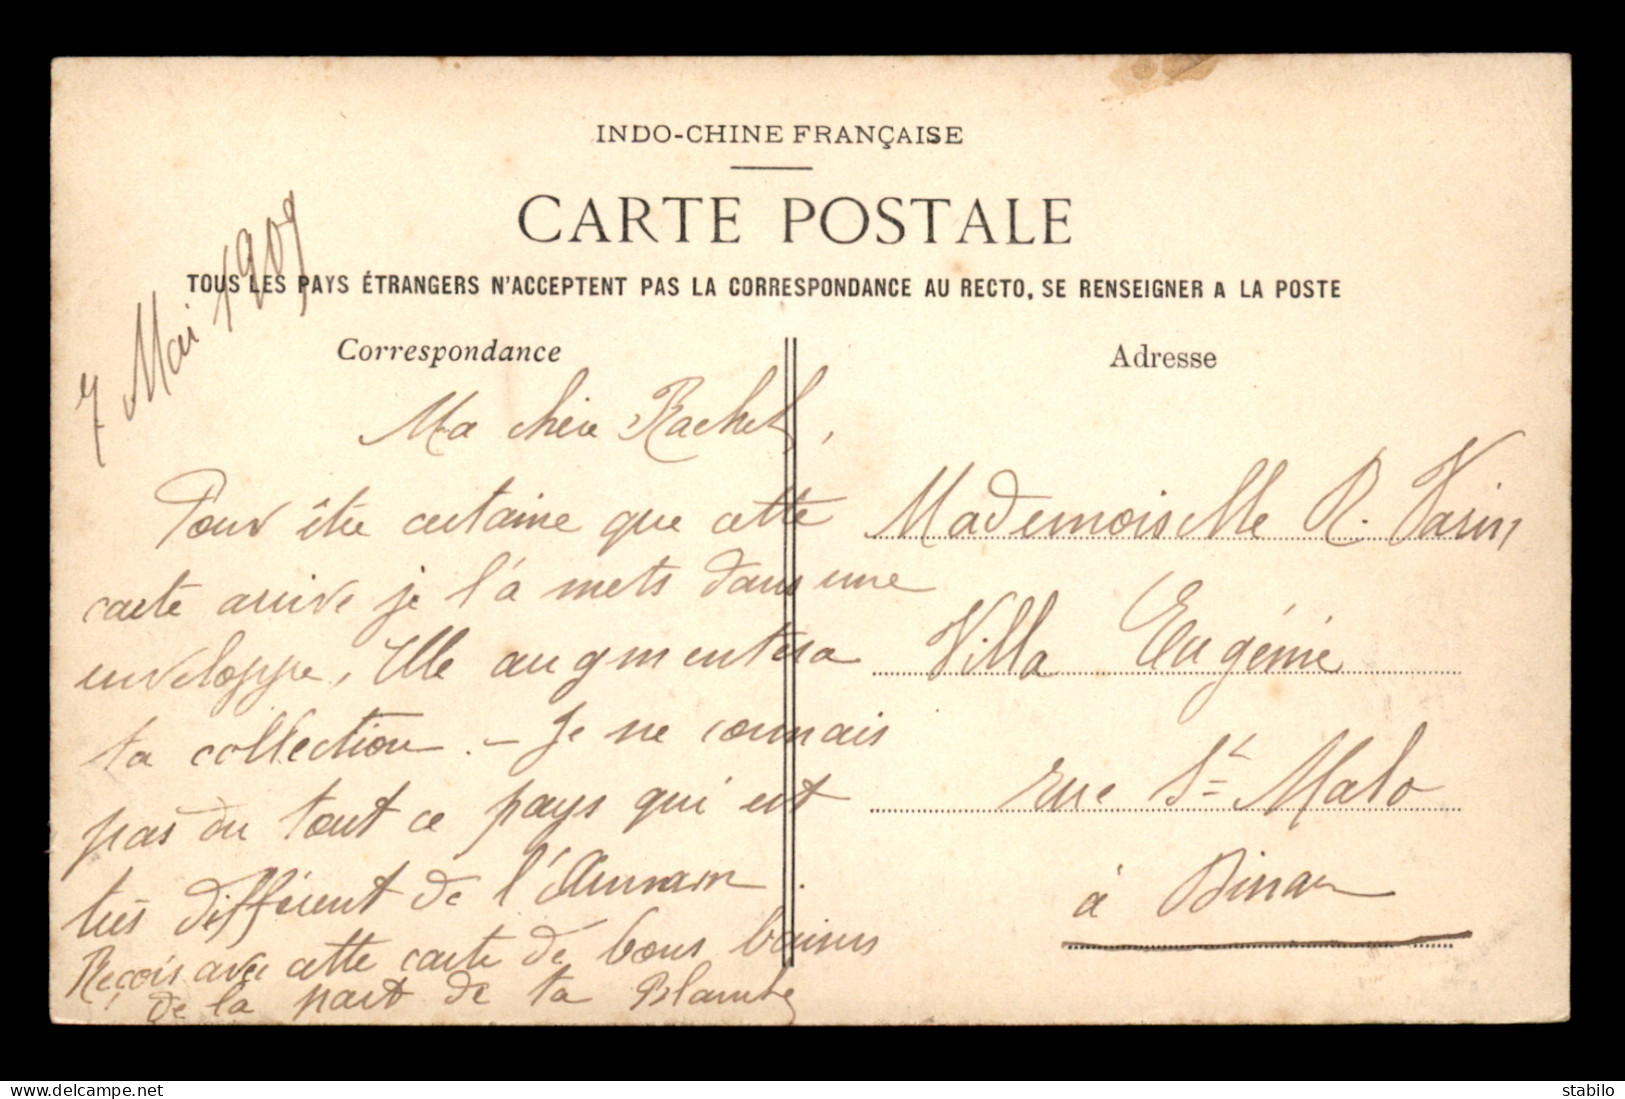 INDO-CHINE FRANÇAISE
CARTE POSTALE
TOUS LES PAYS ÉTRANGERS N'ACCEPTENT PAS LA CORRESPONDANCE AU RECTO, SE RENSEIGNER A LA POSTE
7 Mai 1909
Correspondance
Ma chère Rachel,
Pour être certaine que cette
carte arrive je l'a mets dans une
enveloppe, Elle augmentera
ta collection. - Je ne connais
pas du tout ce pays qui est
très différent de l'Annam.
Reçois avec cette carte de bons baisers
de la part de ta
Adresse
Mademoiselle R. Varin
Villa Eugénie
rue St Malo
à Dinan
stabilo